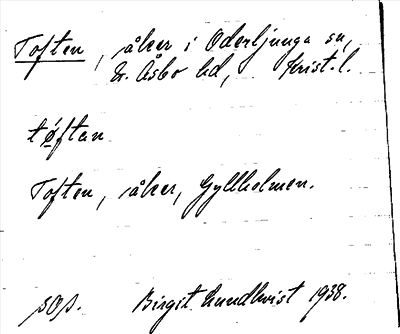 Toften, åker i Oderljunga sn,
N. Åsbo hd, Krist. l.
tøftan
Toften, åker, Gyllholmen.
sOp. Birgit Lundkvist 1938.